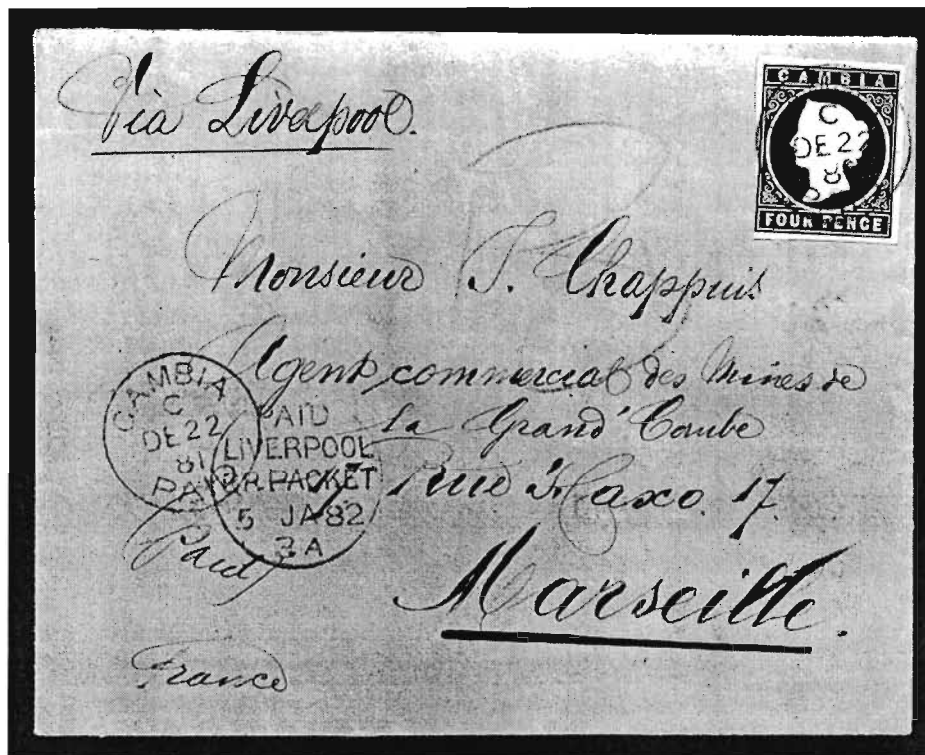 Via Liverpool.
GAMBIA
C
DE 22
8
FOUR PENCE
Monsieur J. Chappuis
Agent commercial des Mines de
la Grand' Combe
Rue Haxo. 17.
Marseille.
GAMBIA
C
DE 22
81
PAID
PAID
LIVERPOOL
BR. PACKET
5 JA 82
3A
Paid
France